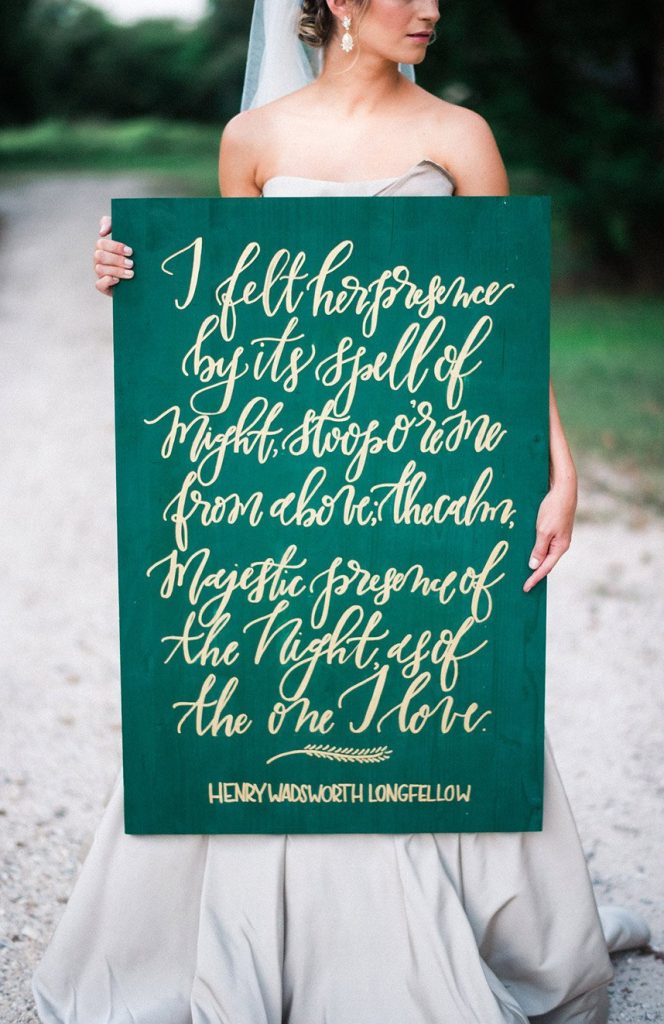 I felt her presence
by its spell of
Might, stoop o're me
from above; the calm,
Majestic presence of
the Night, as of
the one I love.
HENRY WADSWORTH LONGFELLOW